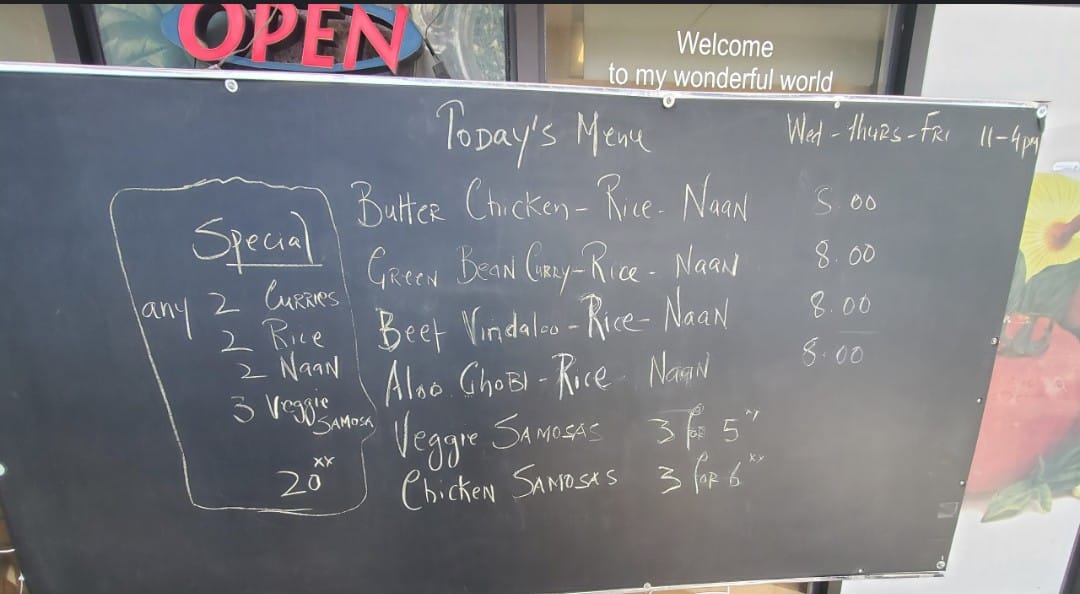 OPEN
Welcome
to my wonderful world
Today's Menu
Wed - Thurs - Fri 11-4pm
Butter Chicken - Rice - Naan 8.00
Green Bean Curry - Rice - Naan 8.00
Beef Vindaloo - Rice - Naan 8.00
Aloo Ghobi - Rice Naan 8.00
Veggie Samosas 3 for 5
Chicken Samosas 3 for 6 xx
Special
any 2 Curries
2 Rice
2 Naan
3 Veggie
Samosa
20 xx